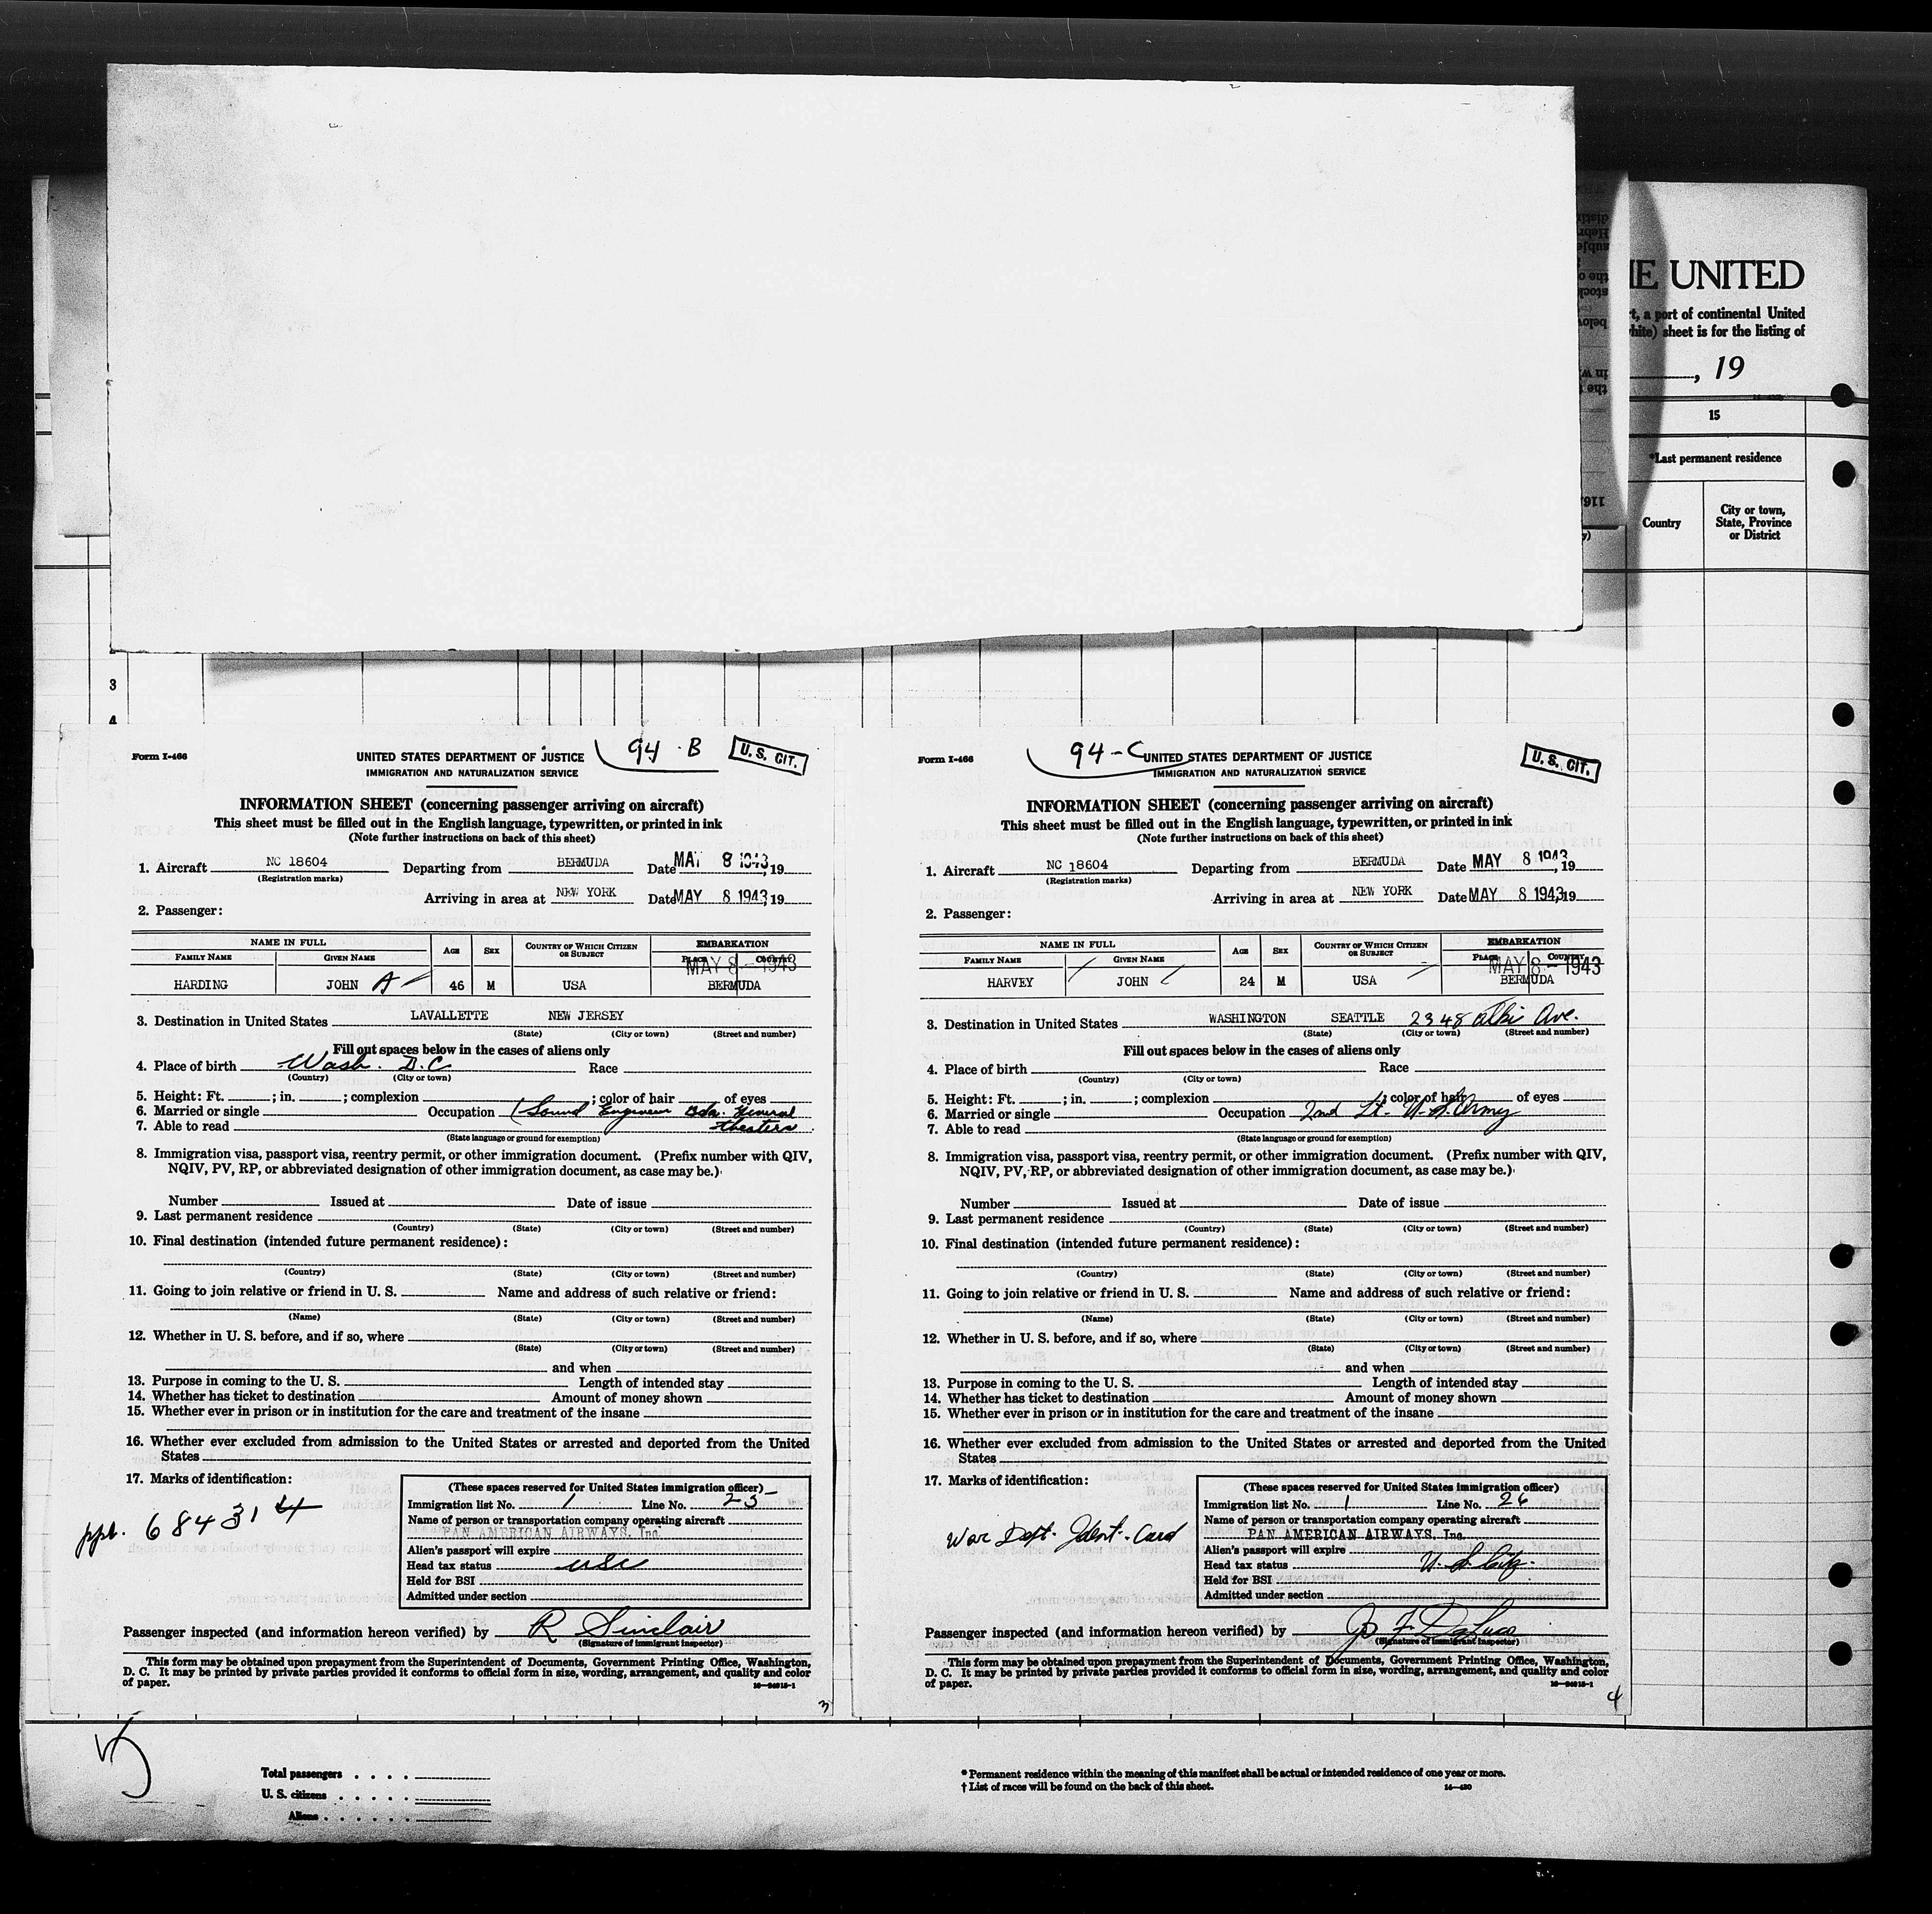 HE UNITED
rt, a port of continental United
white) sheet is for the listing of
, 19
15
*Last permanent residence
Country
City or town,
State, Province
or District
3
4
Form I-466
94-B
U. S. CIT.
UNITED STATES DEPARTMENT OF JUSTICE
IMMIGRATION AND NATURALIZATION SERVICE
INFORMATION SHEET (concerning passenger arriving on aircraft)
This sheet must be filled out in the English language, typewritten, or printed in ink
(Note further instructions on back of this sheet)
1. Aircraft NC 18604 Departing from BERMUDA Date MAY 8 1943, 19
(Registration marks)
Arriving in area at NEW YORK Date MAY 8 1943, 19
2. Passenger:
NAME IN FULL AGE SEX COUNTRY OF WHICH CITIZEN OR SUBJECT EMBARKATION
FAMILY NAME GIVEN NAME PLACE COUNTRY
MAY 8 - 1943
HARDING JOHN A 46 M USA BERMUDA
3. Destination in United States LAVALLETTE NEW JERSEY
(State) (City or town) (Street and number)
Fill out spaces below in the cases of aliens only
4. Place of birth Wash. D.C Race
(Country) (City or town)
5. Height: Ft. ; in. ; complexion ; color of hair of eyes
6. Married or single Occupation (Sound Engineer Bda. General
7. Able to read theaters
(State language or ground for exemption)
8. Immigration visa, passport visa, reentry permit, or other immigration document. (Prefix number with QIV,
NQIV, PV, RP, or abbreviated designation of other immigration document, as case may be.)
Number Issued at Date of issue
9. Last permanent residence
(Country) (State) (City or town) (Street and number)
10. Final destination (intended future permanent residence):
(Country) (State) (City or town) (Street and number)
11. Going to join relative or friend in U. S. Name and address of such relative or friend:
(Name) (State) (City or town) (Street and number)
12. Whether in U. S. before, and if so, where
(State) (City or town) (Street and number)
and when
13. Purpose in coming to the U. S. Length of intended stay
14. Whether has ticket to destination Amount of money shown
15. Whether ever in prison or in institution for the care and treatment of the insane
16. Whether ever excluded from admission to the United States or arrested and deported from the United
States
17. Marks of identification:
ppt. 684314
(These spaces reserved for United States immigration officer)
Immigration list No. 1 Line No. 25
Name of person or transportation company operating aircraft
PAN AMERICAN AIRWAYS, Inc.
Alien's passport will expire
Head tax status USC
Held for BSI
Admitted under section
Passenger inspected (and information hereon verified) by R Sinclair
(Signature of immigrant inspector)
This form may be obtained upon prepayment from the Superintendent of Documents, Government Printing Office, Washington,
D. C. It may be printed by private parties provided it conforms to official form in size, wording, arrangement, and quality and color
of paper.
3
Form I-466
94-C
U. S. CIT.
UNITED STATES DEPARTMENT OF JUSTICE
IMMIGRATION AND NATURALIZATION SERVICE
INFORMATION SHEET (concerning passenger arriving on aircraft)
This sheet must be filled out in the English language, typewritten, or printed in ink
(Note further instructions on back of this sheet)
1. Aircraft NC 18604 Departing from BERMUDA Date MAY 8 1943, 19
(Registration marks)
Arriving in area at NEW YORK Date MAY 8 1943, 19
2. Passenger:
NAME IN FULL AGE SEX COUNTRY OF WHICH CITIZEN OR SUBJECT EMBARKATION
FAMILY NAME GIVEN NAME PLACE COUNTRY
MAY 8 - 1943
HARVEY JOHN 24 M USA BERMUDA
3. Destination in United States WASHINGTON SEATTLE 2348 Alki Ave.
(State) (City or town) (Street and number)
Fill out spaces below in the cases of aliens only
4. Place of birth Race
(Country) (City or town)
5. Height: Ft. ; in. ; complexion ; color of hair of eyes
6. Married or single Occupation 2nd Lt. U.S. Army
7. Able to read
(State language or ground for exemption)
8. Immigration visa, passport visa, reentry permit, or other immigration document. (Prefix number with QIV,
NQIV, PV, RP, or abbreviated designation of other immigration document, as case may be.)
Number Issued at Date of issue
9. Last permanent residence
(Country) (State) (City or town) (Street and number)
10. Final destination (intended future permanent residence):
(Country) (State) (City or town) (Street and number)
11. Going to join relative or friend in U. S. Name and address of such relative or friend:
(Name) (State) (City or town) (Street and number)
12. Whether in U. S. before, and if so, where
(State) (City or town) (Street and number)
and when
13. Purpose in coming to the U. S. Length of intended stay
14. Whether has ticket to destination Amount of money shown
15. Whether ever in prison or in institution for the care and treatment of the insane
16. Whether ever excluded from admission to the United States or arrested and deported from the United
States
17. Marks of identification:
War Dept. Ident. Card
(These spaces reserved for United States immigration officer)
Immigration list No. 1 Line No. 26
Name of person or transportation company operating aircraft
PAN AMERICAN AIRWAYS, Inc.
Alien's passport will expire
Head tax status U. S. Citz.
Held for BSI
Admitted under section
Passenger inspected (and information hereon verified) by
(Signature of immigrant inspector)
This form may be obtained upon prepayment from the Superintendent of Documents, Government Printing Office, Washington,
D. C. It may be printed by private parties provided it conforms to official form in size, wording, arrangement, and quality and color
of paper.
4
5
Total passengers
U. S. citizens
Aliens
* Permanent residence within the meaning of this manifest shall be actual or intended residence of one year or more.
† List of races will be found on the back of this sheet.